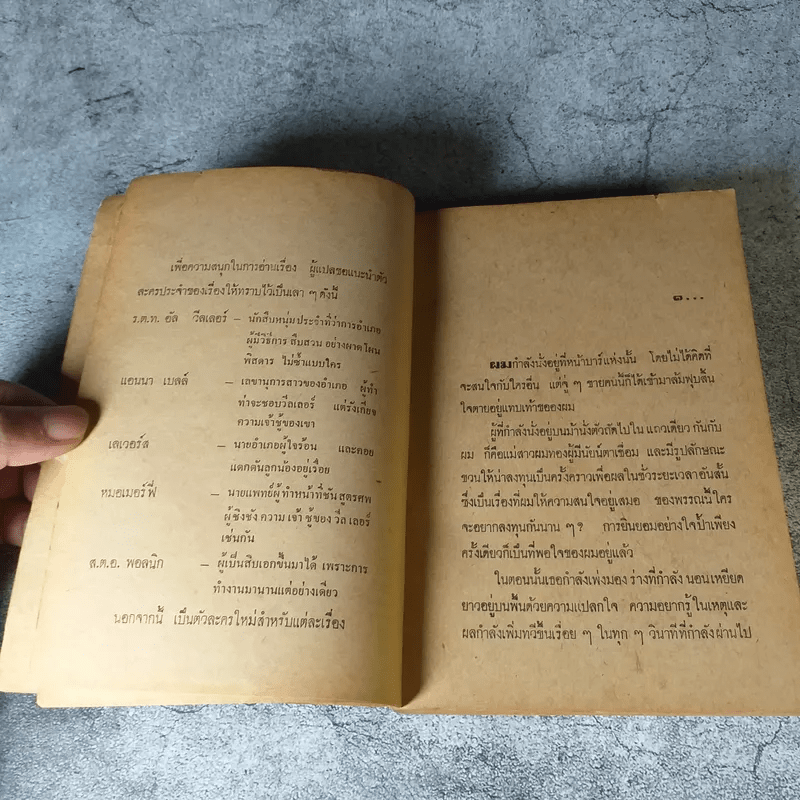 เพื่อความสนุกในการอ่านเรื่อง ผู้แปลขอแนะนำตัว
ละครประจำของเรื่องให้ทราบไว้เป็นเลา ๆ ดังนี้
ร.ต.ท. อัล วีลเลอร์ – นักสืบหนุ่มประจำที่ว่าการอำเภอ
ผู้มีวิธีการ สืบสวน อย่างผาดโผน
พิสดาร ไม่ซ้ำแบบใคร
แอนนา เบลล์ – เลขานุการสาวของอำเภอ ผู้ทำ
ท่าจะชอบวีลเลอร์ แต่รังเกียจ
ความเจ้าชู้ของเขา
เลเวอร์ส – นายอำเภอผู้ใจร้อน และคอย
แดกดันลูกน้องอยู่เรื่อย
หมอเมอร์ฟี่ – นายแพทย์ผู้ทำหน้าที่ชันสูตรศพ
ผู้ชิงชังความเจ้าชู้ของวีลเลอร์
เช่นกัน
ส.ต.อ. พอลนิก – ผู้เป็นสิบเอกขึ้นมาได้ เพราะการ
ทำงานมานานแต่อย่างเดียว
นอกจากนี้ เป็นตัวละครใหม่สำหรับแต่ละเรื่อง
๑...
ผมกำลังนั่งอยู่ที่หน้าบาร์แห่งนั้น โดยไม่ได้คิดที่
จะสนใจกับใครอื่น แต่จู่ ๆ ชายคนนี้ก็ได้เข้ามาล้มฟุบสิ้น
ใจตายอยู่แทบเท้าของผม
ผู้ที่กำลังนั่งอยู่บนม้านั่งตัวถัดไปใน แถวเดียว กันกับ
ผม ก็คือแม่สาวผมทองผู้มีนัยน์ตาเชื่อม และมีรูปลักษณะ
ชวนให้น่าลงทุนเป็นครั้งคราวเพื่อผลในชั่วระยะเวลาอันสั้น
ซึ่งเป็นเรื่องที่ผมให้ความสนใจอยู่เสมอ ของพรรณนี้ใคร
จะอยากลงทุนกันนาน ๆ? การยินยอมอย่างใจป้ำเพียง
ครั้งเดียวก็เป็นที่พอใจของผมอยู่แล้ว
ในตอนนั้นเธอกำลังเพ่งมอง ร่างที่กำลัง นอนเหยียด
ยาวอยู่บนพื้นด้วยความแปลกใจ ความอยากรู้ในเหตุและ
ผลกำลังเพิ่มทวีขึ้นเรื่อย ๆ ในทุก ๆ วินาทีที่กำลังผ่านไป